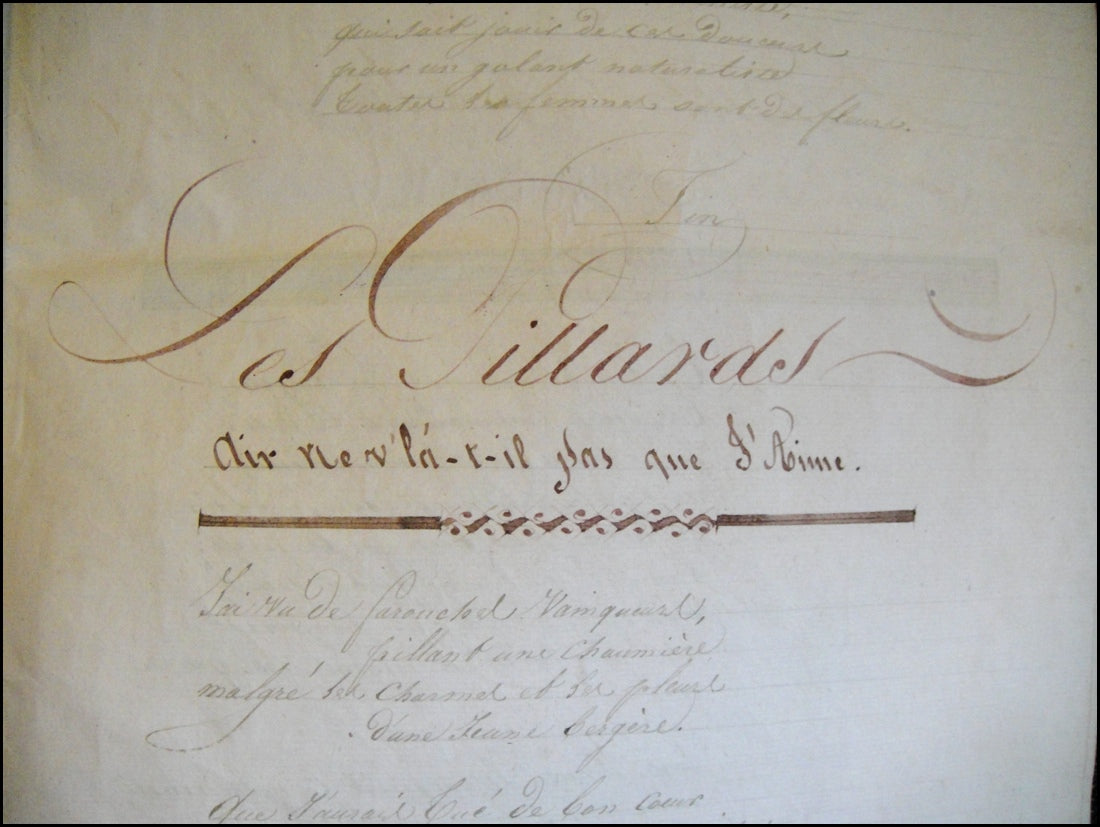 qui sait jouir de ces douceurs
pour un galant naturaliste
toutes les femmes sont des fleurs.
Fin
Les Pillards
Air ne v'là-t-il pas que J'Aime.
J'ai vu de farouches Vainqueurs,
pillant une chaumière
malgré les charmes et les pleurs
d'une Jeune bergère.
que J'aurois tué de bon coeur